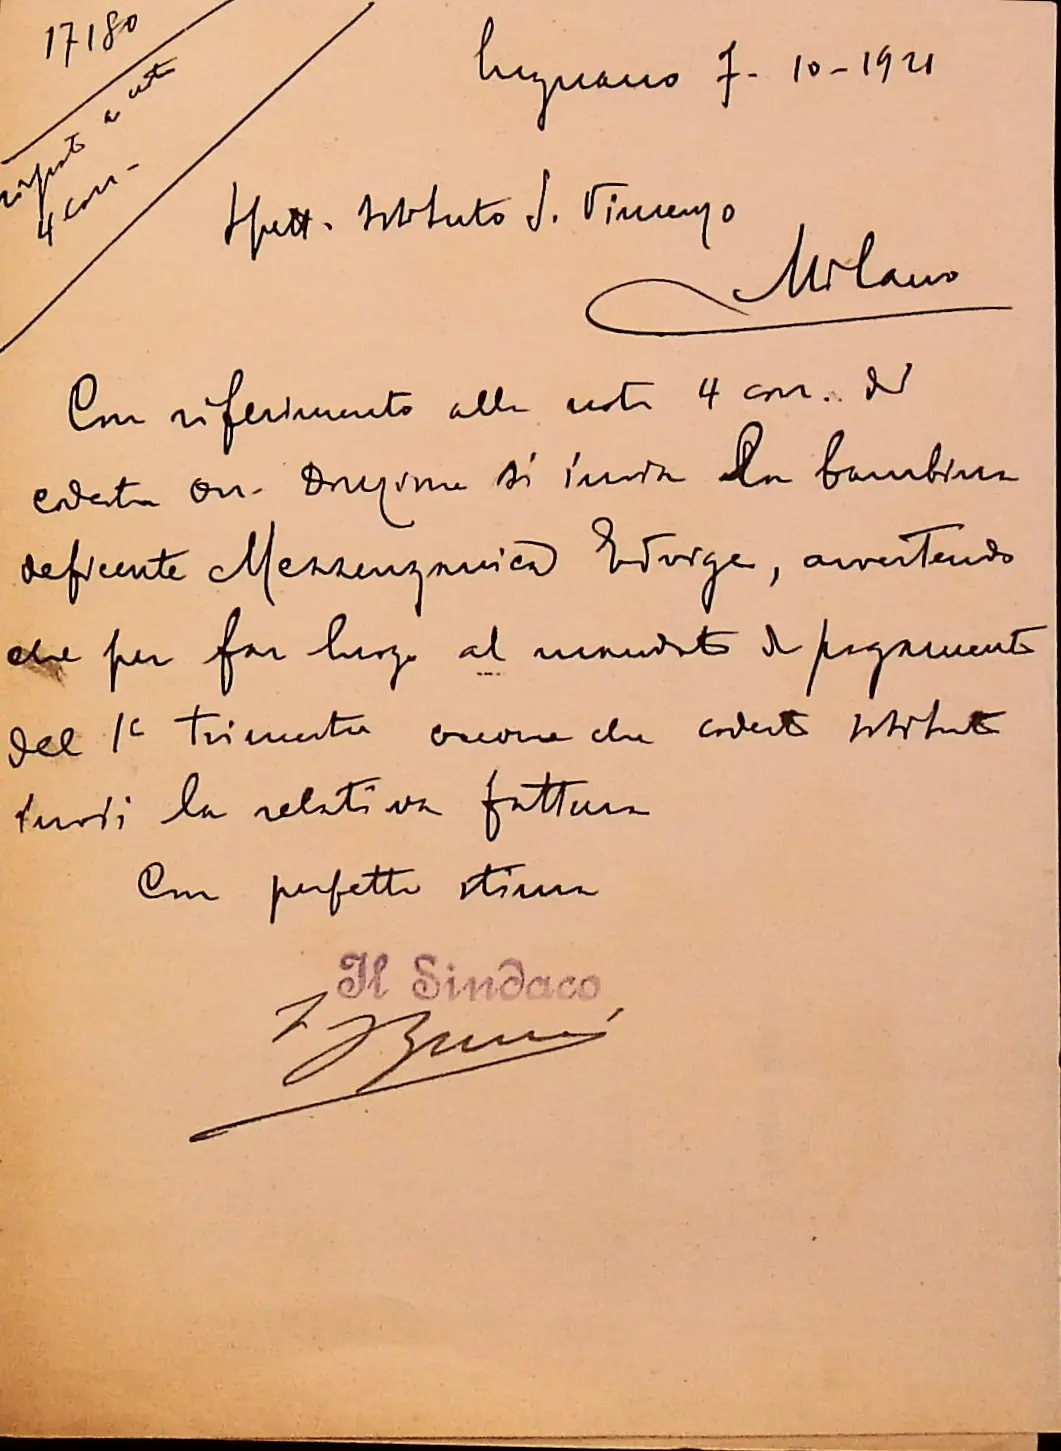 17180
risposta a nota
4 corr.
Lugnano 7-10-1921
Spett. Istituto S. Vincenzo
Milano
Con riferimento alla nota 4 corr. di
codesta On. Direzione si invia la bambina
deficente Mezzenzanica Edvige, avvertendo
che per far luogo al mandato di pagamento
del 1° trimestre occorre che codesto Istituto
invii la relativa fattura
Con perfetta stima
Il Sindaco